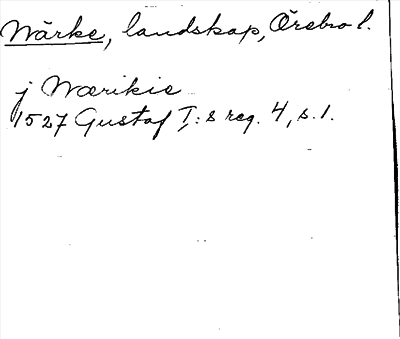 Närke, landskap, Örebro l.
j Nærikie
1527 Gustaf I:s reg. 4, s. 1.